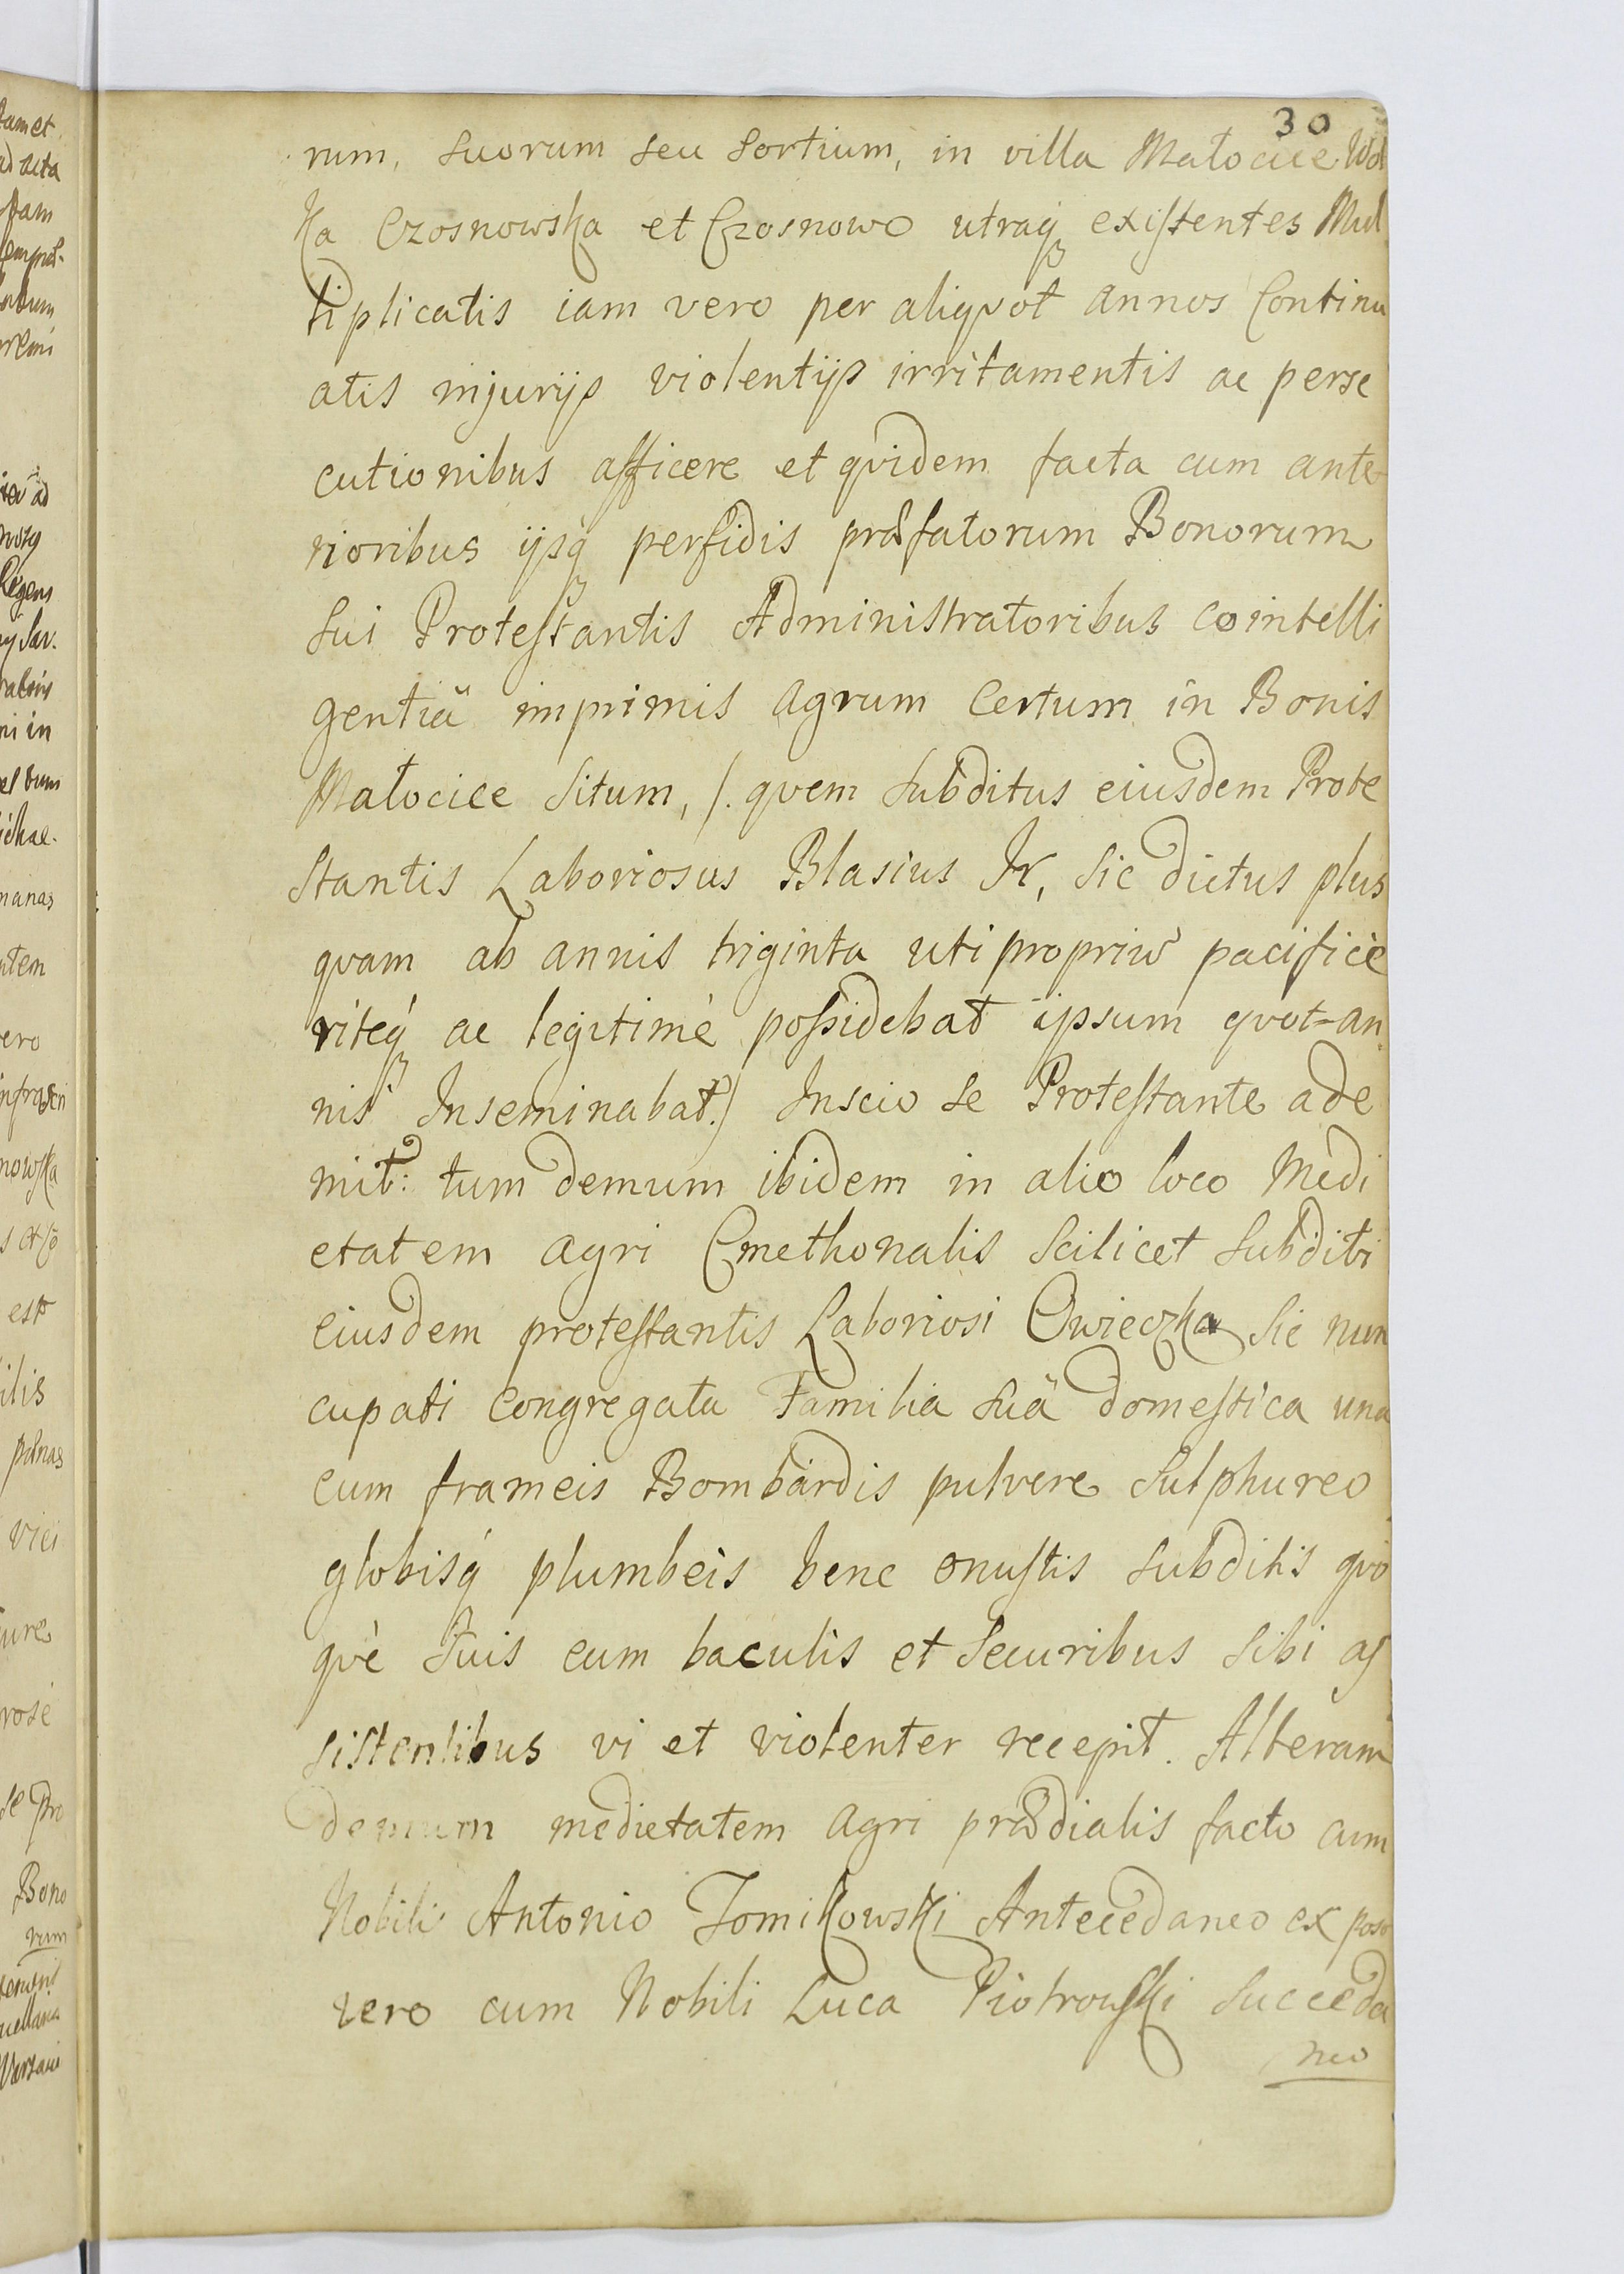 30
rum, suorum seu sortium, in villa Małocice Wol
ka Czosnowska et Czosnowo utraqꝫ existentes Mul
tiplicatis iam vero per aliqvot annos Continu
atis injurijs violentijs irritamentis ac perse
cutionibus afficere et qvidem facta cum ante
rioribus ijsqꝫ perfidis præfatorum Bonorum
sui Protestantis Administratoribus cointelli
gentiâ imprimis agrum Certum in Bonis
Małocice situm, /. qvem subditus eiusdem Prote
stantis Laboriosus Blasius Jr, sic dictus plus
qvam ab annis triginta uti propriũ pacificè
riteqꝫ ac legitimè possidebat ipsum qvot=an
nis Inseminabat./ Inscio se Protestante ade
mit: tum demum ibidem in alio loco Medi
etatem agri Cmethonalis scilicet subditi
eiusdem protestantis Laboriosi Owieczka sic nun
cupati congregata Familia suâ domestica una
cum frameis Bombardis pulvere sulphureo
globisqꝫ plumbeis bene onustis subditis qvo
qvè suis cum baculis et securibus sibi as
sistentibus vi et violenter recepit. Alteram
demum medietatem agri prædialis facto cum
Nobili Antonio Tomikowski Antecedaneo ex post
vero cum Nobili Luca Piotrowski succeda
neo
tam et
ad acta
Regens
ni in
manas
vero
nowska
est
ilis
vici
jure
se pro
Bono
rum